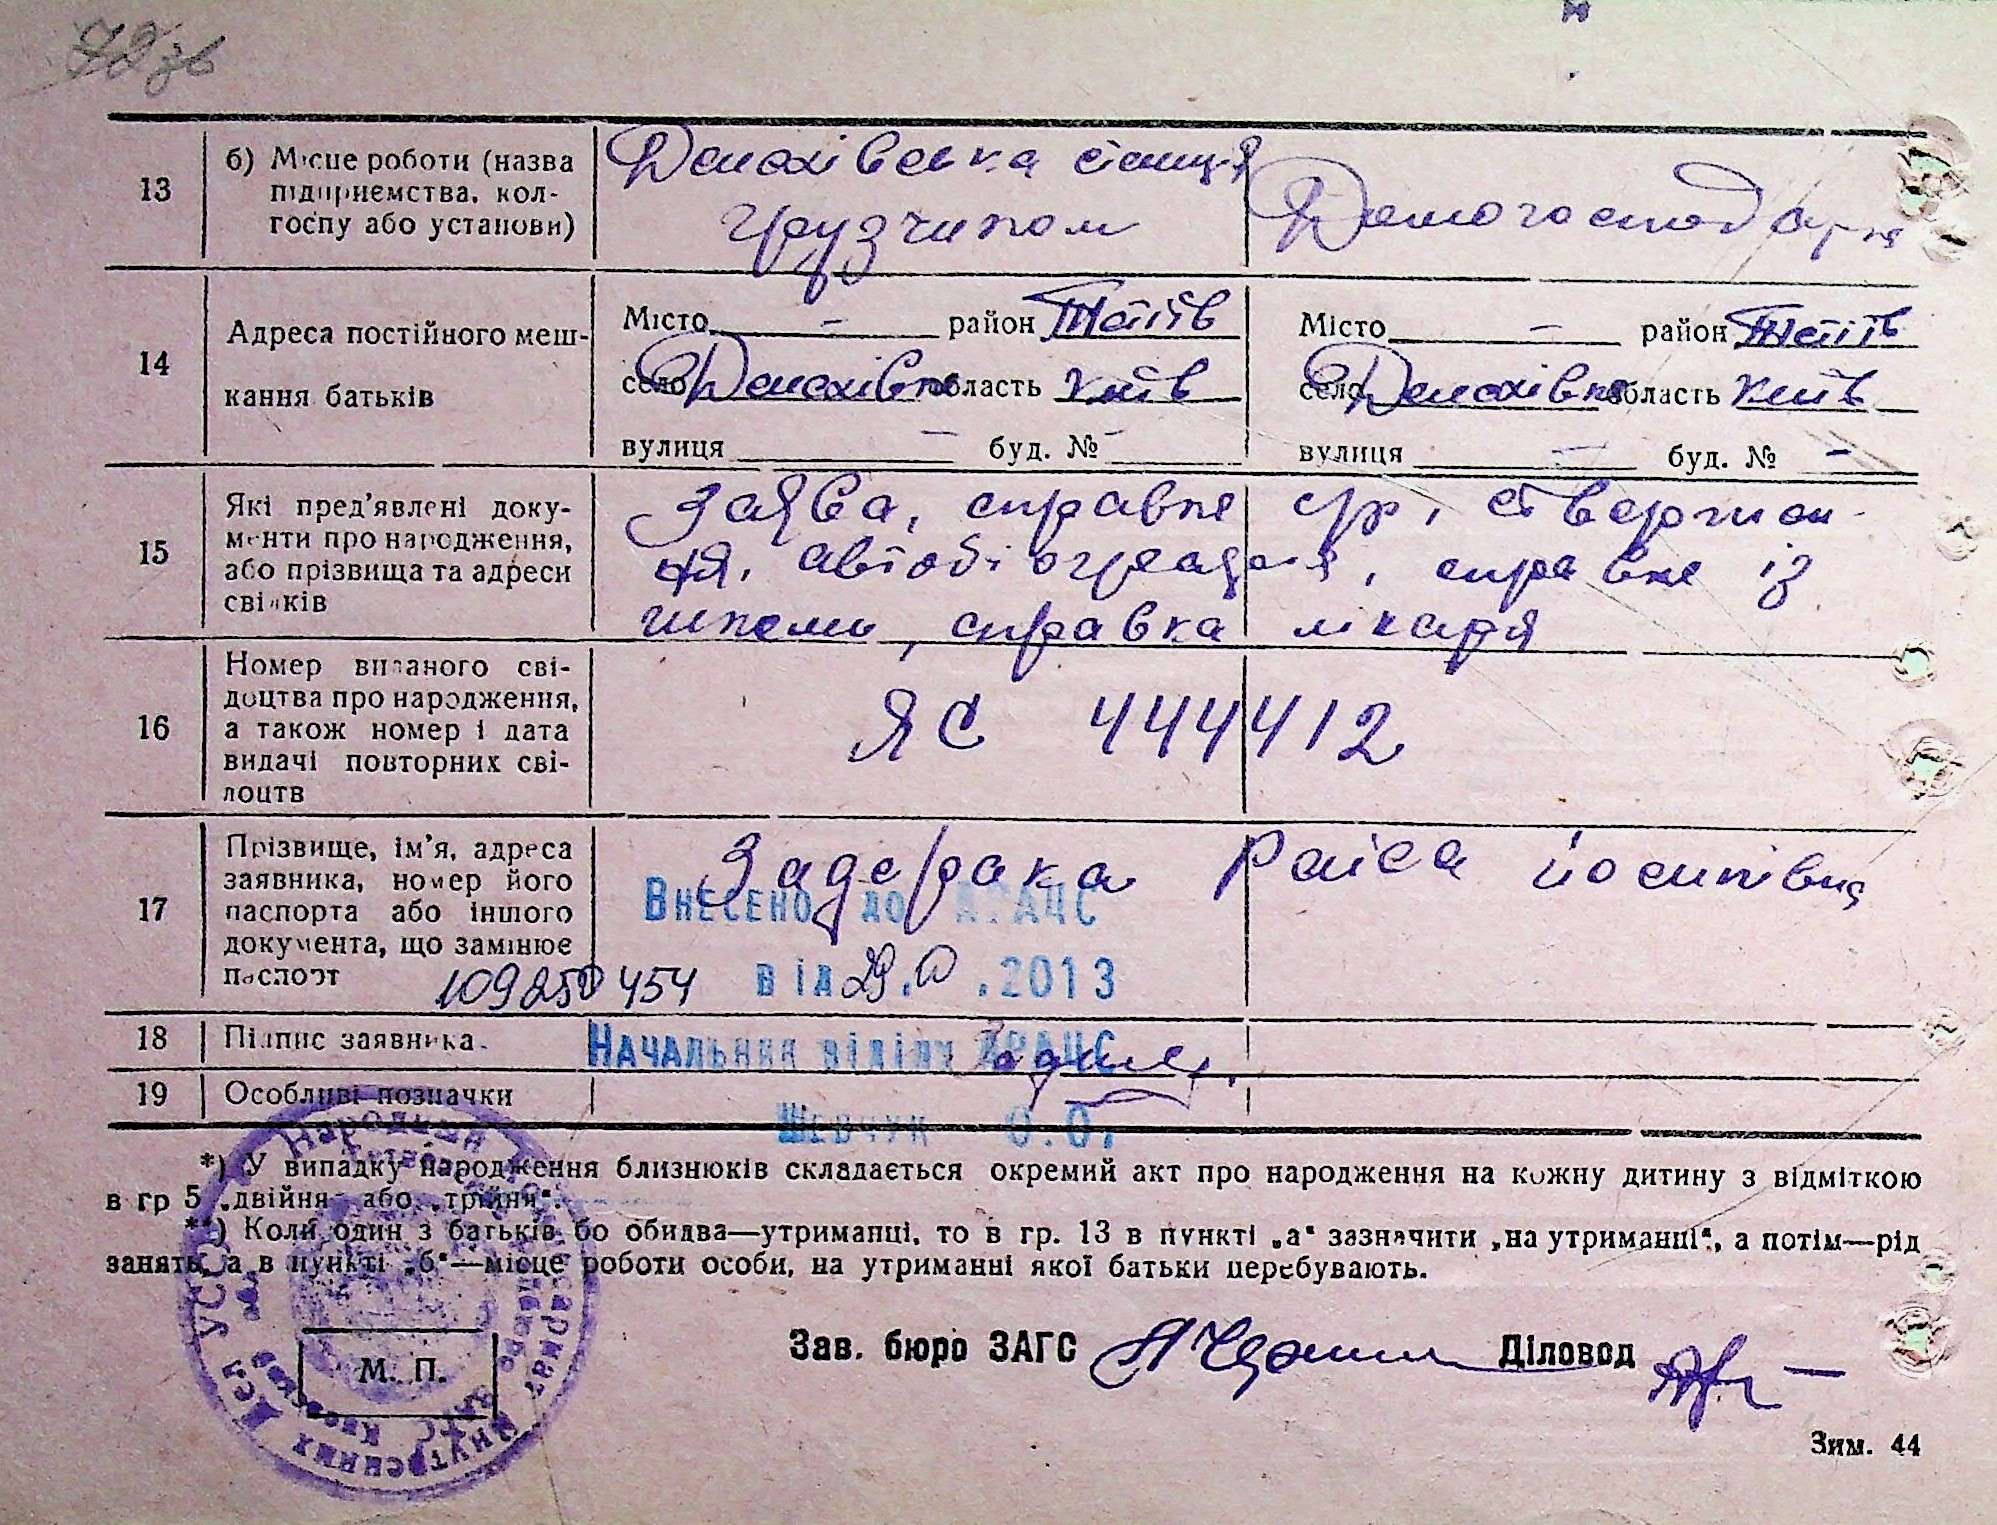 72 зв
13
б) Місце роботи (назва
підприємства, кол-
госпу або установи)
Денхівська станція
грузчиком
Домогосподарка
14
Адреса постійного меш-
кання батьків
Місто – район Тетіїв
село Денхівка область Київ
вулиця – буд. № –
Місто – район Тетіїв
село Денхівка область Київ
вулиця – буд. № –
15
Які пред'явлені доку-
менти про народження,
або прізвища та адреси
свідків
Заява, справка с/р, стверджен-
ня, автобіографія, справка із
школи, справка лікаря
16
Номер виданого сві-
доцтва про народження,
а також номер і дата
видачі повторних сві-
доцтв
ЯС 444412
17
Прізвище, ім'я, адреса
заявника, номер його
паспорта або іншого
документа, що замінює
паспорт
Задерака Раіса Йосипівна
Внесено до ДРАЦС
від 29. .2013
Начальник відділу ДРАЦС
Шевчук О.О.
18
Підпис заявника.
19
Особливі позначки
*) У випадку народження близнюків складається окремий акт про народження на кожну дитину з відміткою
в гр 5 „двійня" або „трійня".
**) Коли один з батьків бо обидва—утриманці, то в гр. 13 в пункті „а" зазначити „на утриманні", а потім—рід
занять, а в пункті „б"—місце роботи особи, на утриманні якої батьки перебувають.
Зав. бюро ЗАГС
Діловод
М. П.
Зим. 44